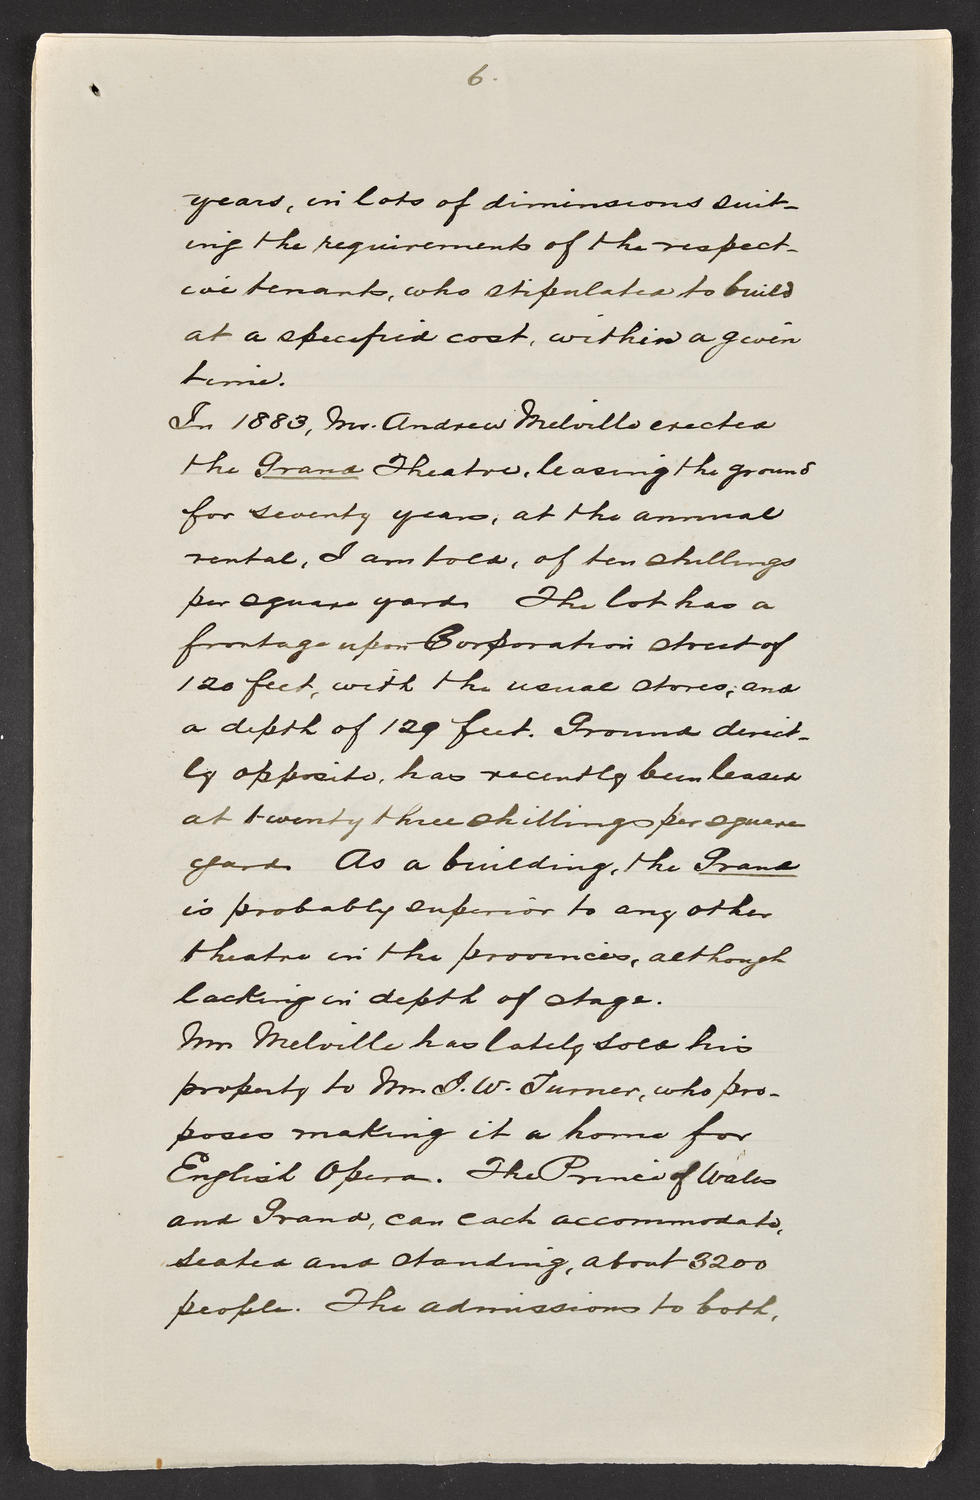 6.
years, in lots of diminsions suit-
ing the requirements of the respect-
ive tenants, who stipulated to build
at a specified cost, within a given
time.
In 1883, Mr. Andrew Melville erected
the Grand Theatre, leasing the ground
for seventy years, at the annual
rental, I am told, of ten shillings
per square yard. The lot has a
frontage upon Corporation street of
120 feet, with the usual stores; and
a depth of 129 feet. Ground direct-
ly opposite, has recently been leased
at twenty three shillings per square
yard. As a building, the Grand
is probably superior to any other
theatre in the provinces, although
lacking in depth of stage.
Mr. Melville has lately sold his
property to Mr. J. W. Turner, who pro-
poses making it a home for
English Opera. The Prince of Wales
and Grand, can each accommodate,
seated and standing, about 3200
people. The admissions to both,